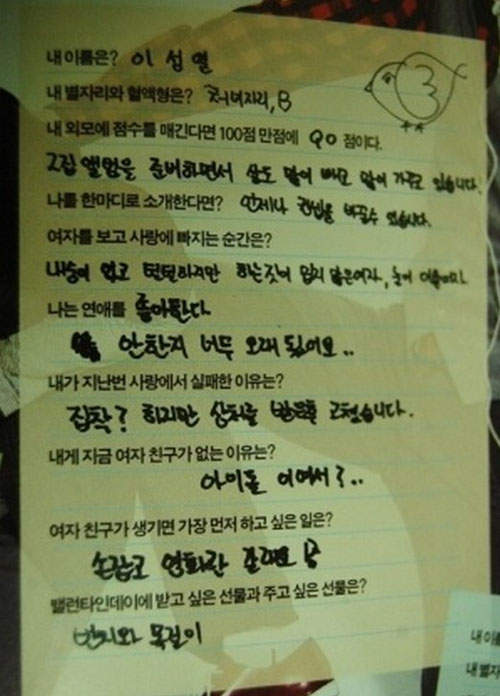 내 이름은? 이성열
내 별자리와 혈액형은? 처녀자리, B
내 외모에 점수를 매긴다면 100점 만점에 90 점이다.
2집 앨범을 준비하면서 살도 많이 빼고 많이 가꾸고 있습니다.
나를 한마디로 소개한다면? 언제나 관심을 바꿀수 있습니다.
여자를 보고 사랑에 빠지는 순간은?
내숭이 없고 털털하지만 하는짓이 밉지 않은여자, 눈이
나는 연애를 좋아한다.
안한지 너무 오래 됬어요..
내가 지난번 사랑에서 실패한 이유는?
집착? 하지만 상처를 받은후 고쳤습니다.
내게 지금 여자 친구가 없는 이유는?
아이돌 이여서?..
여자 친구가 생기면 가장 먼저 하고 싶은 일은?
손잡고 영화관
밸런타인데이에 받고 싶은 선물과 주고 싶은 선물은?
반지와 목걸이
내 이름
내 별자